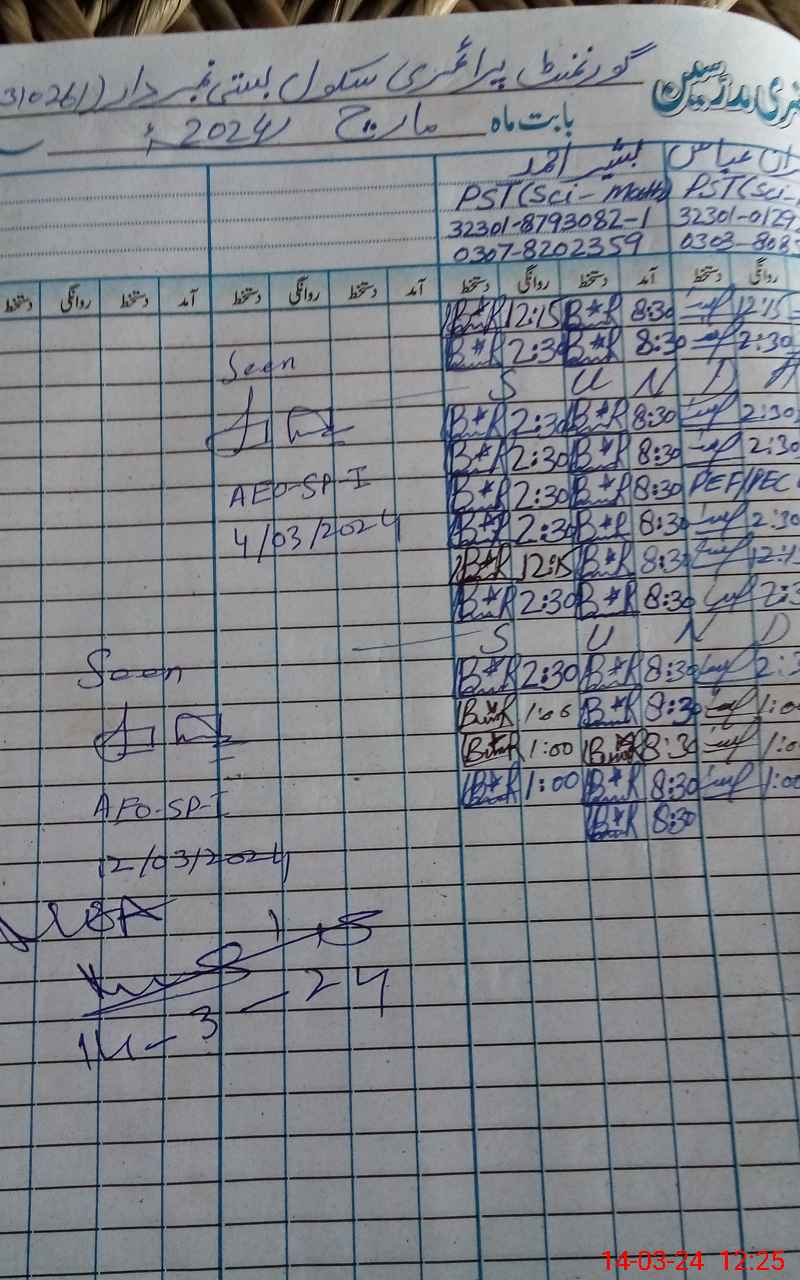 گورنمنٹ پرائمری سکول بستی نمبردار
بابت ماہ مارچ 2024ء
بشیر احمد
PST(Sci-Math) PST(Sci-
32301-8793082-1 32301-0129
0307-8202359 0303-808
دستخط روانگی دستخط آمد دستخط روانگی دستخط آمد دستخط روانگی دستخط آمد دستخط روانگی
B*R 12:15 B*R 8:30 12:15
B*R 2:30 B*R 8:30 2:30
Seen
S U N D A
B*R 2:30 B*R 8:30 2:30
B*R 2:30 B*R 8:30 2:30
AEO-SP-I
B*R 2:30 B*R 8:30 PEF/PEC
4/03/2024
B*R 2:30 B*R 8:30 2:30
B*R 12:15 B*R 8:30 12:1
B*R 2:30 B*R 8:30 2:3
S U N D
Seen
B*R 2:30 B*R 8:30 2:3
B*R 1:00 B*R 8:30 1:00
B*R 1:00 B*R 8:30 1:0
AEO-SP-I
B*R 1:00 B*R 8:30 1:00
B*R 8:30
12/03/2024
14-3-24
14-03-24 12:25